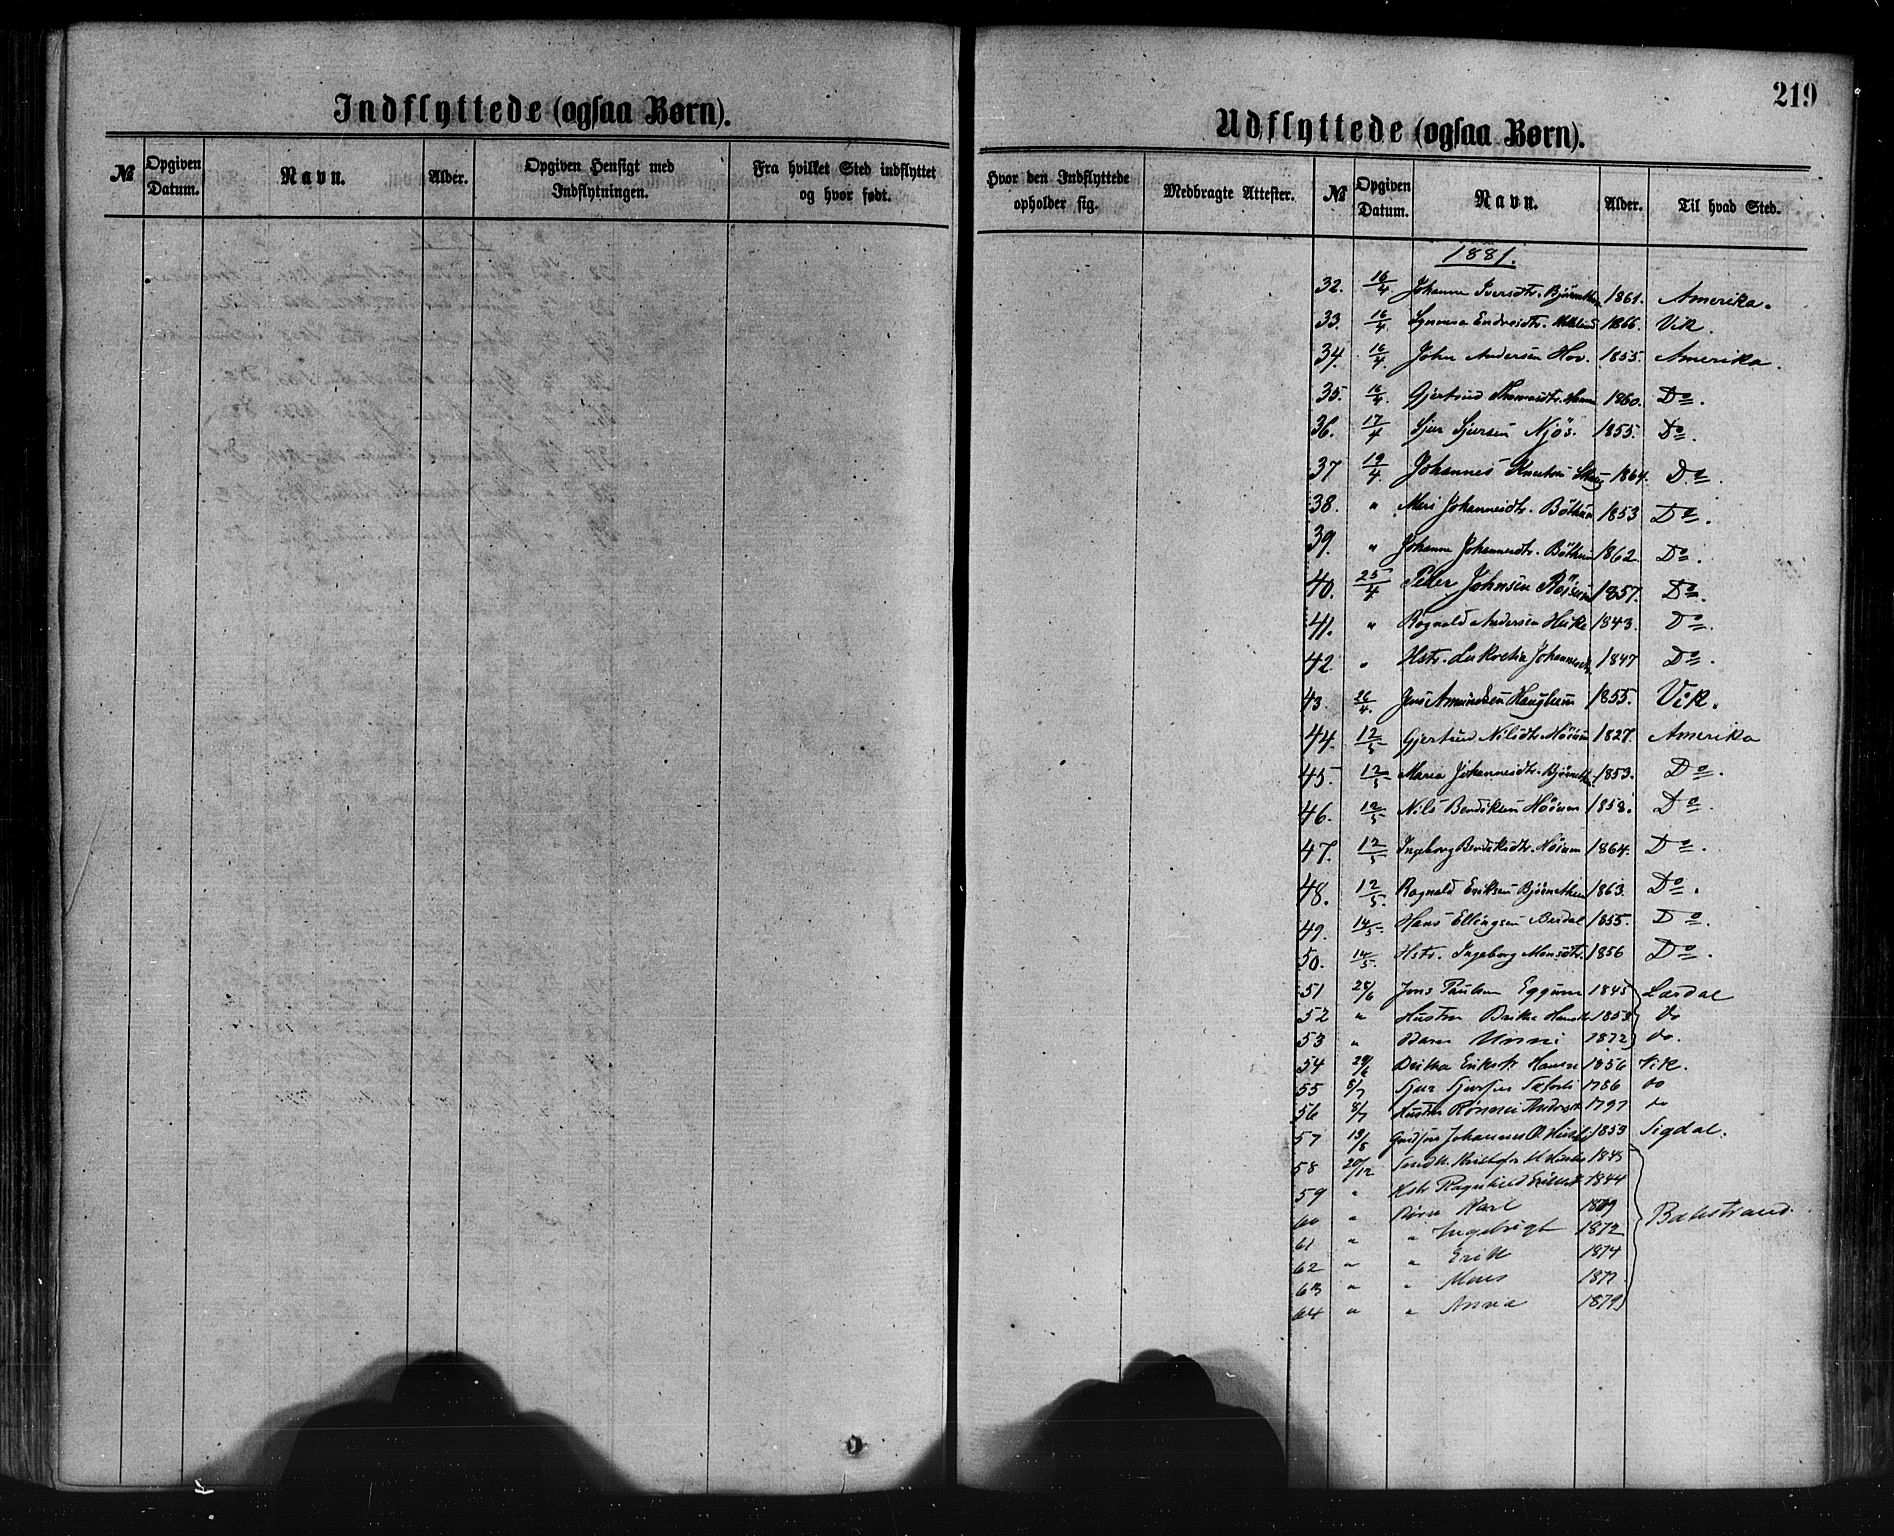 219
Indflyttede (ogsaa Børn).
№ Opgiven Datum. Navn. Alder. Opgiven Hensigt med Indflytningen. Fra hvilket Sted indflyttet og hvor født.
Udflyttede (ogsaa Børn).
Hvor den Indflyttede opholder sig. Medbragte Attester. № Opgiven Datum. Navn. Alder. Til hvad Sted.
1881.
32. 16/4. Johanne Iversdtr. 1861. Amerika.
33. 16/4 Synneva Endreidtr. 1866. Vik.
34. 16/4. John Andersen Hov. 1855. Amerika.
35. 16/4 Gjertrud Thomasdtr. 1860. Do.
36. 17/4 Sjur Sjursen Njøs. 1855. Do.
37 19/4. Johannes Knutsen 1864. Do.
38. " Mari Johannesdtr. Bøthun 1853 Do.
39. " Johanne Johannesdtr. Bøthun 1862. Do.
40. 25/4 Peder Johnsen 1857. Do.
41. " Ragnald Andersen Huske 1843. Do.
42 " Hstr. Lukretia Johannesdtr. 1847 Do.
43. 26/4. Jens Amundsen Haughum 1855. Vik.
44. 12/5 Gjertrud Nilsdtr. Høium 1827. Amerika
45. 12/5 Maria Johannesdtr. 1853. Do.
46. 12/5 Nils Bendiksen Høium 1858. Do.
47. 12/5 Ingeborg Bendiksdtr. Høium 1864. Do.
48. 12/5. Ragnald Eriksen Bjørnethun 1863. Do.
49. 14/5 Hans Ellingsen Berdal 1855. Do.
50. 14/5. Hstr. Ingeborg Monsdtr. 1856 Do.
51 28/6 Jens Paulsen Eggum 1845 Lærdal
52 " Hustru Brita 1853 do
53 " Barn Unni 1872 do.
54 29/6 Eriksdtr 1856 Vik.
55 8/7 Sjur Sjursen 1786 do
56 8/7 Hustru Rønnei 1797 do
57 13/8 Johannes O. 1853 Sigdal.
58 20/12 Kristofer 1845
59 " Hstr Ragnhild 1844
60 " Børn Karl 1869 Balestrand.
61 " " Ingebrigt 1872
62 " " Erik 1874
63 " " Mons 1877
64 " " Anna 1879